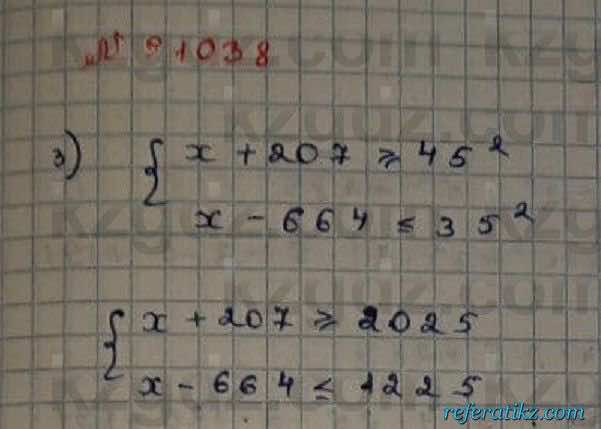 № 1038
3) { x + 207 ≥ 45²
x - 664 ≤ 35²
{ x + 207 ≥ 2025
x - 664 ≤ 1225
referatikz.com